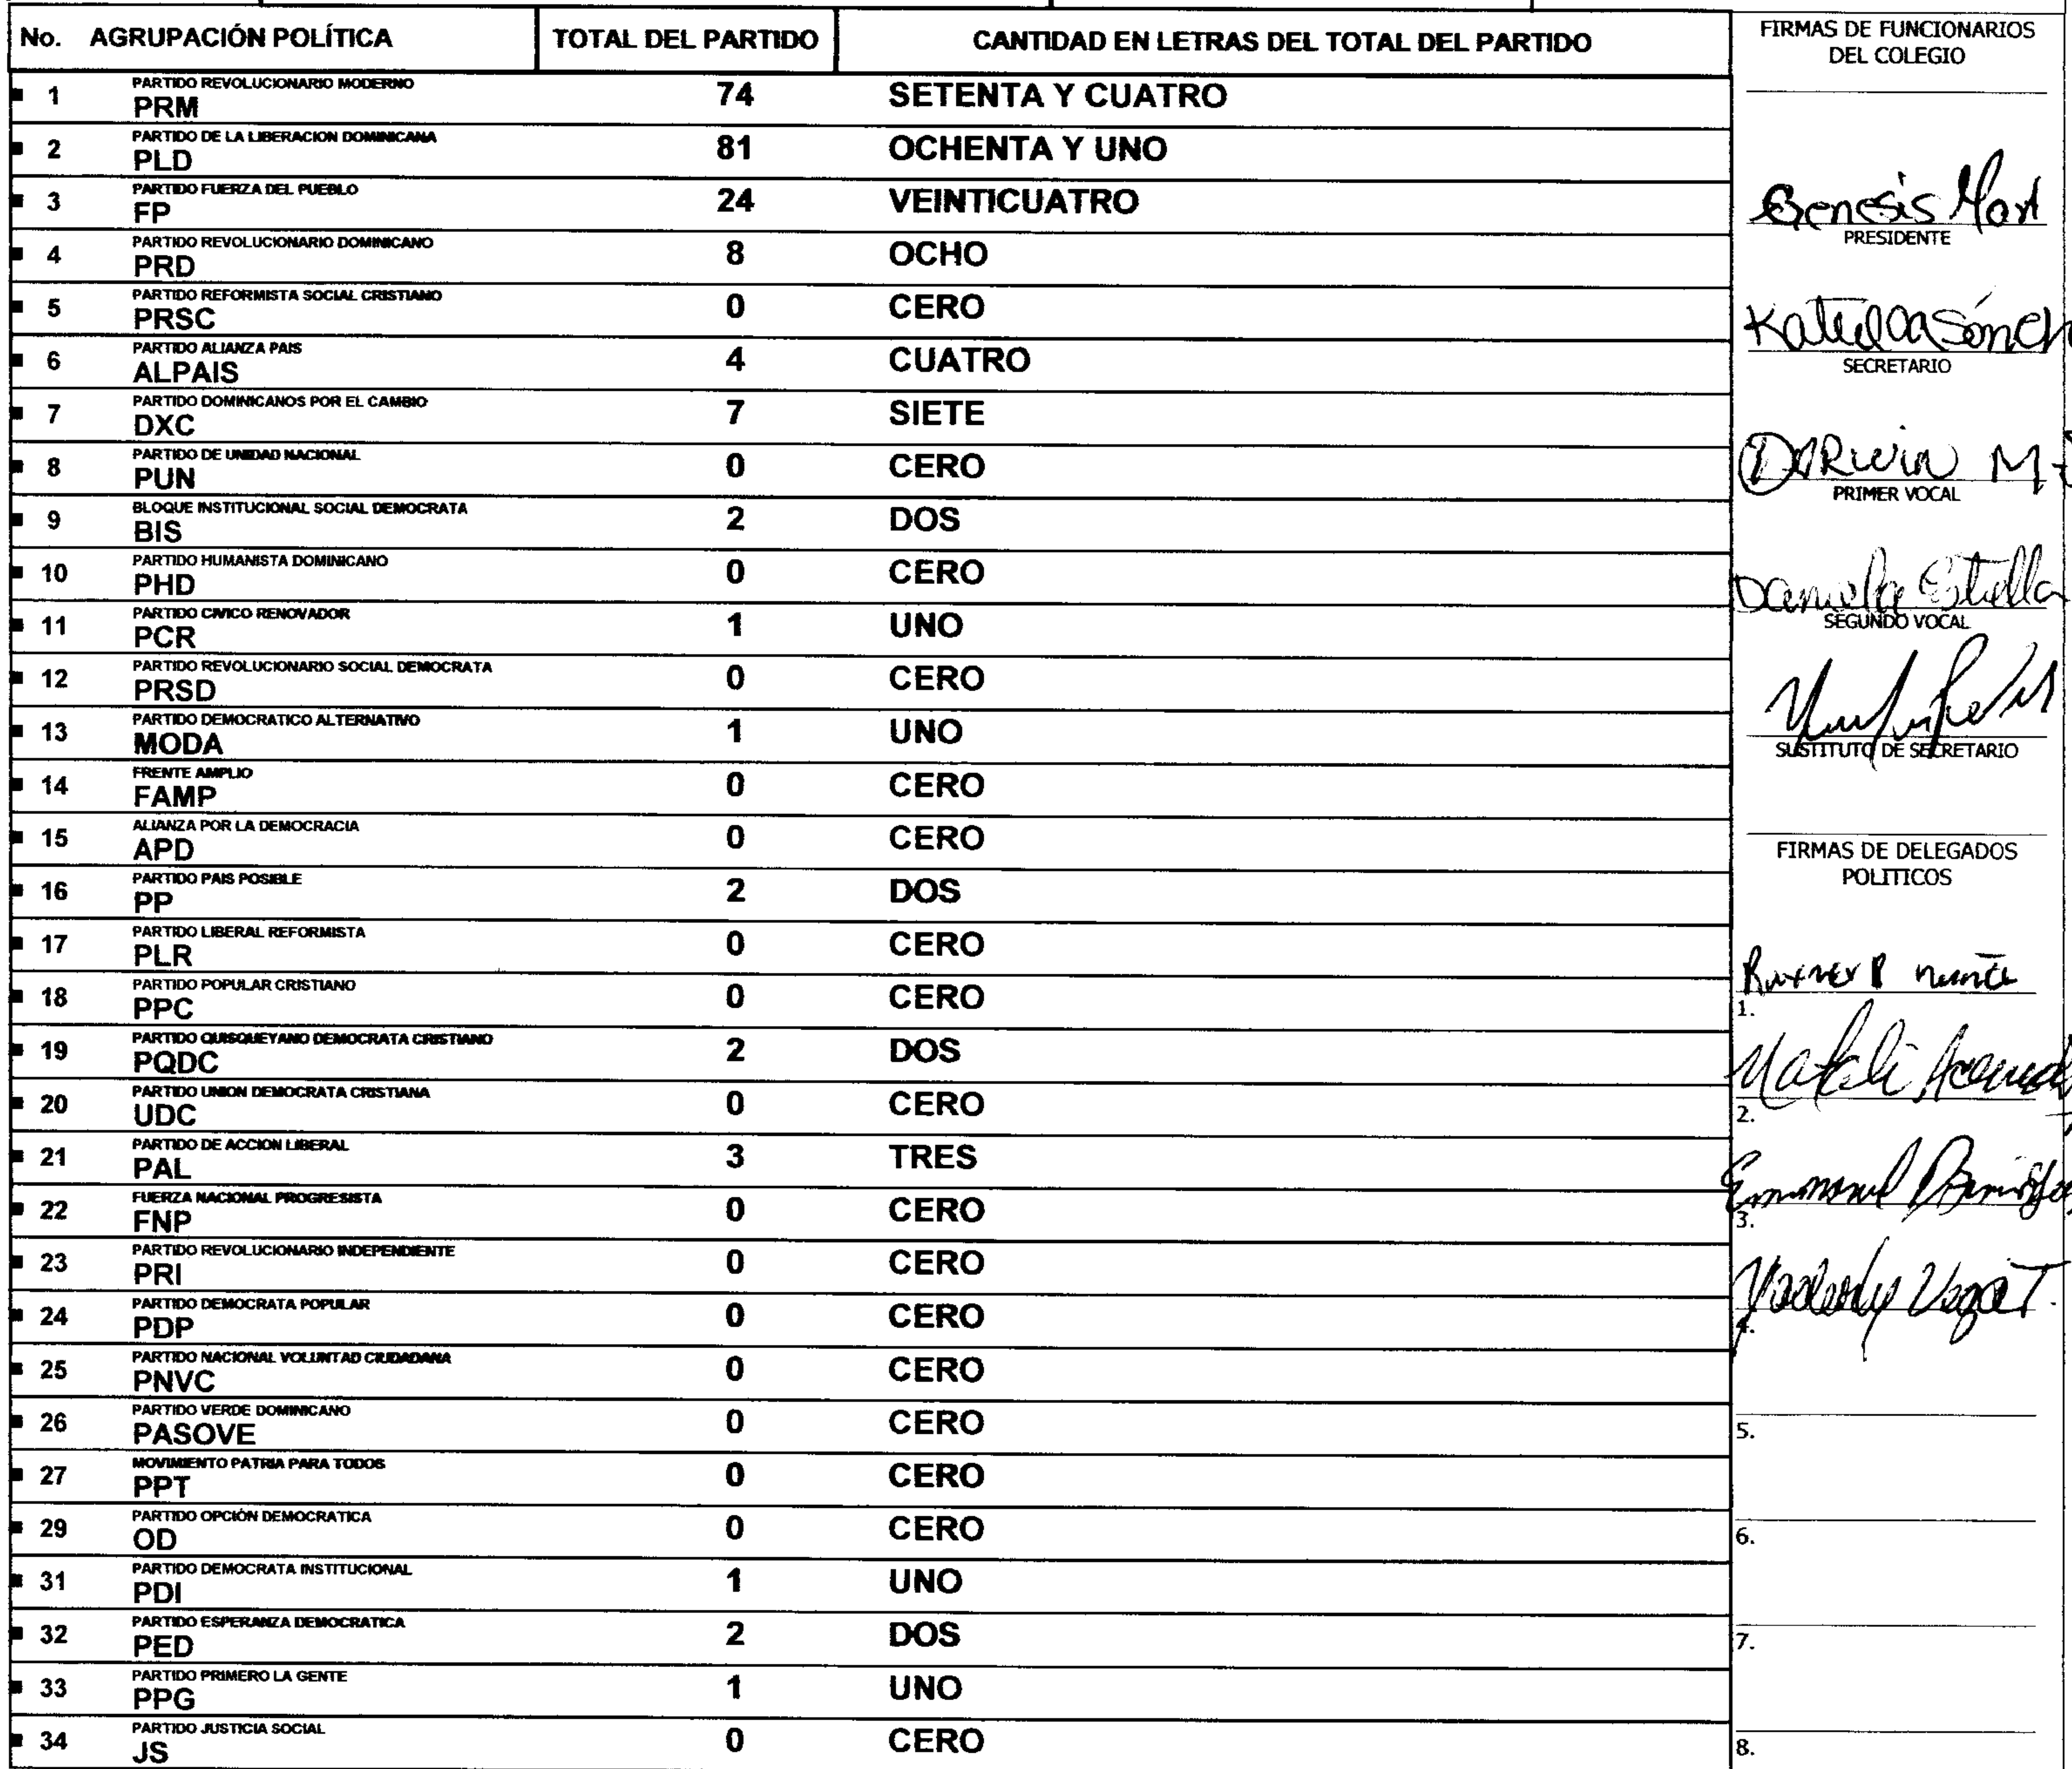 No. AGRUPACIÓN POLÍTICA TOTAL DEL PARTIDO CANTIDAD EN LETRAS DEL TOTAL DEL PARTIDO
1 PARTIDO REVOLUCIONARIO MODERNO
PRM 74 SETENTA Y CUATRO
2 PARTIDO DE LA LIBERACION DOMINICANA
PLD 81 OCHENTA Y UNO
3 PARTIDO FUERZA DEL PUEBLO
FP 24 VEINTICUATRO
4 PARTIDO REVOLUCIONARIO DOMINICANO
PRD 8 OCHO
5 PARTIDO REFORMISTA SOCIAL CRISTIANO
PRSC 0 CERO
6 PARTIDO ALIANZA PAIS
ALPAIS 4 CUATRO
7 PARTIDO DOMINICANOS POR EL CAMBIO
DXC 7 SIETE
8 PARTIDO DE UNIDAD NACIONAL
PUN 0 CERO
9 BLOQUE INSTITUCIONAL SOCIAL DEMOCRATA
BIS 2 DOS
10 PARTIDO HUMANISTA DOMINICANO
PHD 0 CERO
11 PARTIDO CIVICO RENOVADOR
PCR 1 UNO
12 PARTIDO REVOLUCIONARIO SOCIAL DEMOCRATA
PRSD 0 CERO
13 PARTIDO DEMOCRATICO ALTERNATIVO
MODA 1 UNO
14 FRENTE AMPLIO
FAMP 0 CERO
15 ALIANZA POR LA DEMOCRACIA
APD 0 CERO
16 PARTIDO PAIS POSIBLE
PP 2 DOS
17 PARTIDO LIBERAL REFORMISTA
PLR 0 CERO
18 PARTIDO POPULAR CRISTIANO
PPC 0 CERO
19 PARTIDO QUISQUEYANO DEMOCRATA CRISTIANO
PQDC 2 DOS
20 PARTIDO UNION DEMOCRATA CRISTIANA
UDC 0 CERO
21 PARTIDO DE ACCION LIBERAL
PAL 3 TRES
22 FUERZA NACIONAL PROGRESISTA
FNP 0 CERO
23 PARTIDO REVOLUCIONARIO INDEPENDIENTE
PRI 0 CERO
24 PARTIDO DEMOCRATA POPULAR
PDP 0 CERO
25 PARTIDO NACIONAL VOLUNTAD CIUDADANA
PNVC 0 CERO
26 PARTIDO VERDE DOMINICANO
PASOVE 0 CERO
27 MOVIMIENTO PATRIA PARA TODOS
PPT 0 CERO
29 PARTIDO OPCIÓN DEMOCRATICA
OD 0 CERO
31 PARTIDO DEMOCRATA INSTITUCIONAL
PDI 1 UNO
32 PARTIDO ESPERANZA DEMOCRATICA
PED 2 DOS
33 PARTIDO PRIMERO LA GENTE
PPG 1 UNO
34 PARTIDO JUSTICIA SOCIAL
JS 0 CERO
FIRMAS DE FUNCIONARIOS
DEL COLEGIO
Genesis
PRESIDENTE
SECRETARIO
Darwin M
PRIMER VOCAL
Daniela Estrella
SEGUNDO VOCAL
SUSTITUTO DE SECRETARIO
FIRMAS DE DELEGADOS
POLITICOS
1.
Natali
2.
Emmanuel
3.
Vega T.
4.
5.
6.
7.
8.